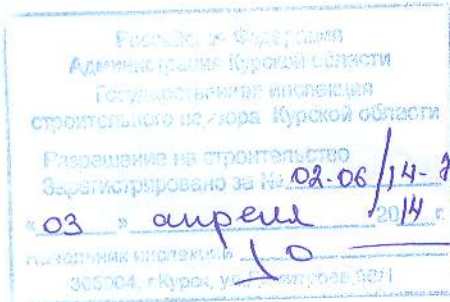 Российская Федерация
Администрация Курской области
Государственная инспекция
строительного надзора Курской области
Разрешение на строительство
Зарегистрировано за № 02-06/14-
"03" апреля 2014 г.
Начальник инспекции
305004, г.Курск, ул.